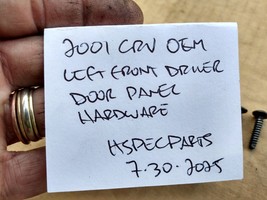 2001 CRV OEM
LEFT FRONT DRIVER
DOOR PANEL
HARDWARE
HSPECPARTS
7.30.2025